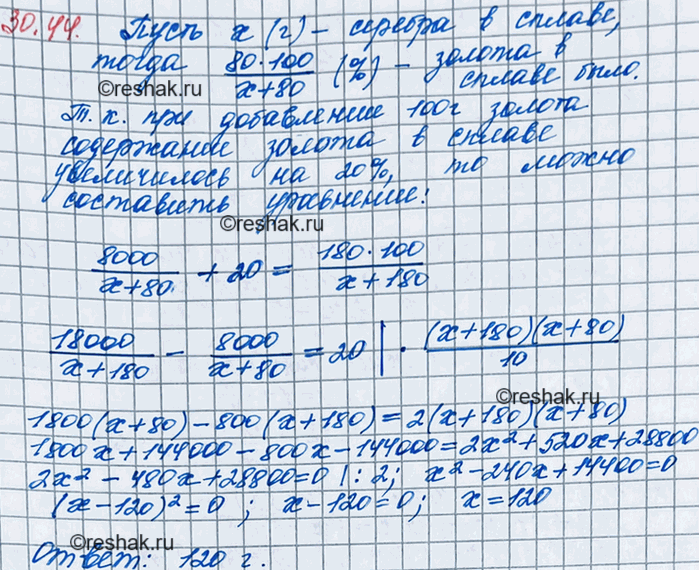 30.44. Пусть x (г) – серебра в сплаве,
тогда 80·100/(x+80) (%) – золота в сплаве было.
©reshak.ru
Т.к. при добавление 100г золота
содержание золота в сплаве
увеличилось на 20%, то можно
составить уравнение:
©reshak.ru
8000/(x+80) + 20 = 180·100/(x+180)
18000/(x+180) – 8000/(x+80) = 20 | · (x+180)(x+80)/10
©reshak.ru
1800(x+80)–800(x+180)=2(x+180)(x+80)
1800x+144000–800x–144000=2x²+520x+28800
2x²–480x+28800=0 |:2; x²–240x+14400=0
(x–120)²=0; x–120=0; x=120
©reshak.ru
Ответ: 120 г.